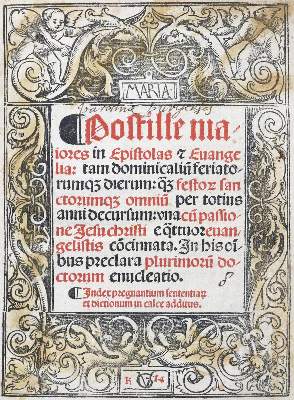 MARIA
¶Postille ma⸗
iores in Epistolas ⁊ Euange
lia: tam dominicaliũ: feriato⸗
rumqȝ dierum: qȝ̃ festorꝝ san
ctorumqȝ omniũ per totius
anni decursum: vna cũ passio⸗
ne Jesu christi e q̃ttuor euan
gelistis cõcinnata. In his oĩ⸗
bus preclara plurimorũ do⸗
ctorum enucleatio.
¶Index pregnantium sententiaꝝ
et dictionum in calce additus.